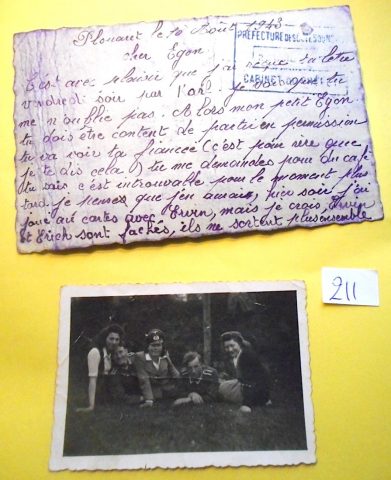 Plouaret le 10 Août 1943
PREFECTURE DES
Cher Egon.
C'est avec plaisir que j'ai reçue ta lettre
CABINET
vendredi soir sur l'on. Je vois que tu
me n'oublie pas. Alors mon petit Egon.
tu dois être content de partir en permission
tu va voir ta fiancée (c'est pour rire que
je te dis cela) tu me demandes pour du café
tu sais, c'est introuvable pour le moment plus
tard je penses que j'en aurais, hier soir j'ai
joué aux cartes avec Erwin, mais je crois, Erwin
et Erich sont fachés, ils ne sortent plus ensemble
211